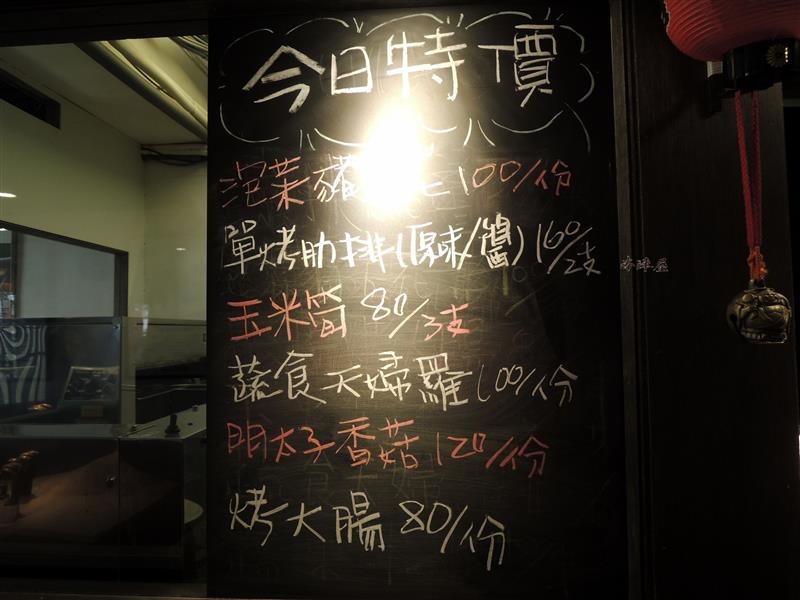 今日特價
泡菜豬 100/份
單烤肋排(原味/醬)160/2支
玉米筍 80/3支
蔬食天婦羅 100/份
明太子香菇 120/份
烤大腸 80/份